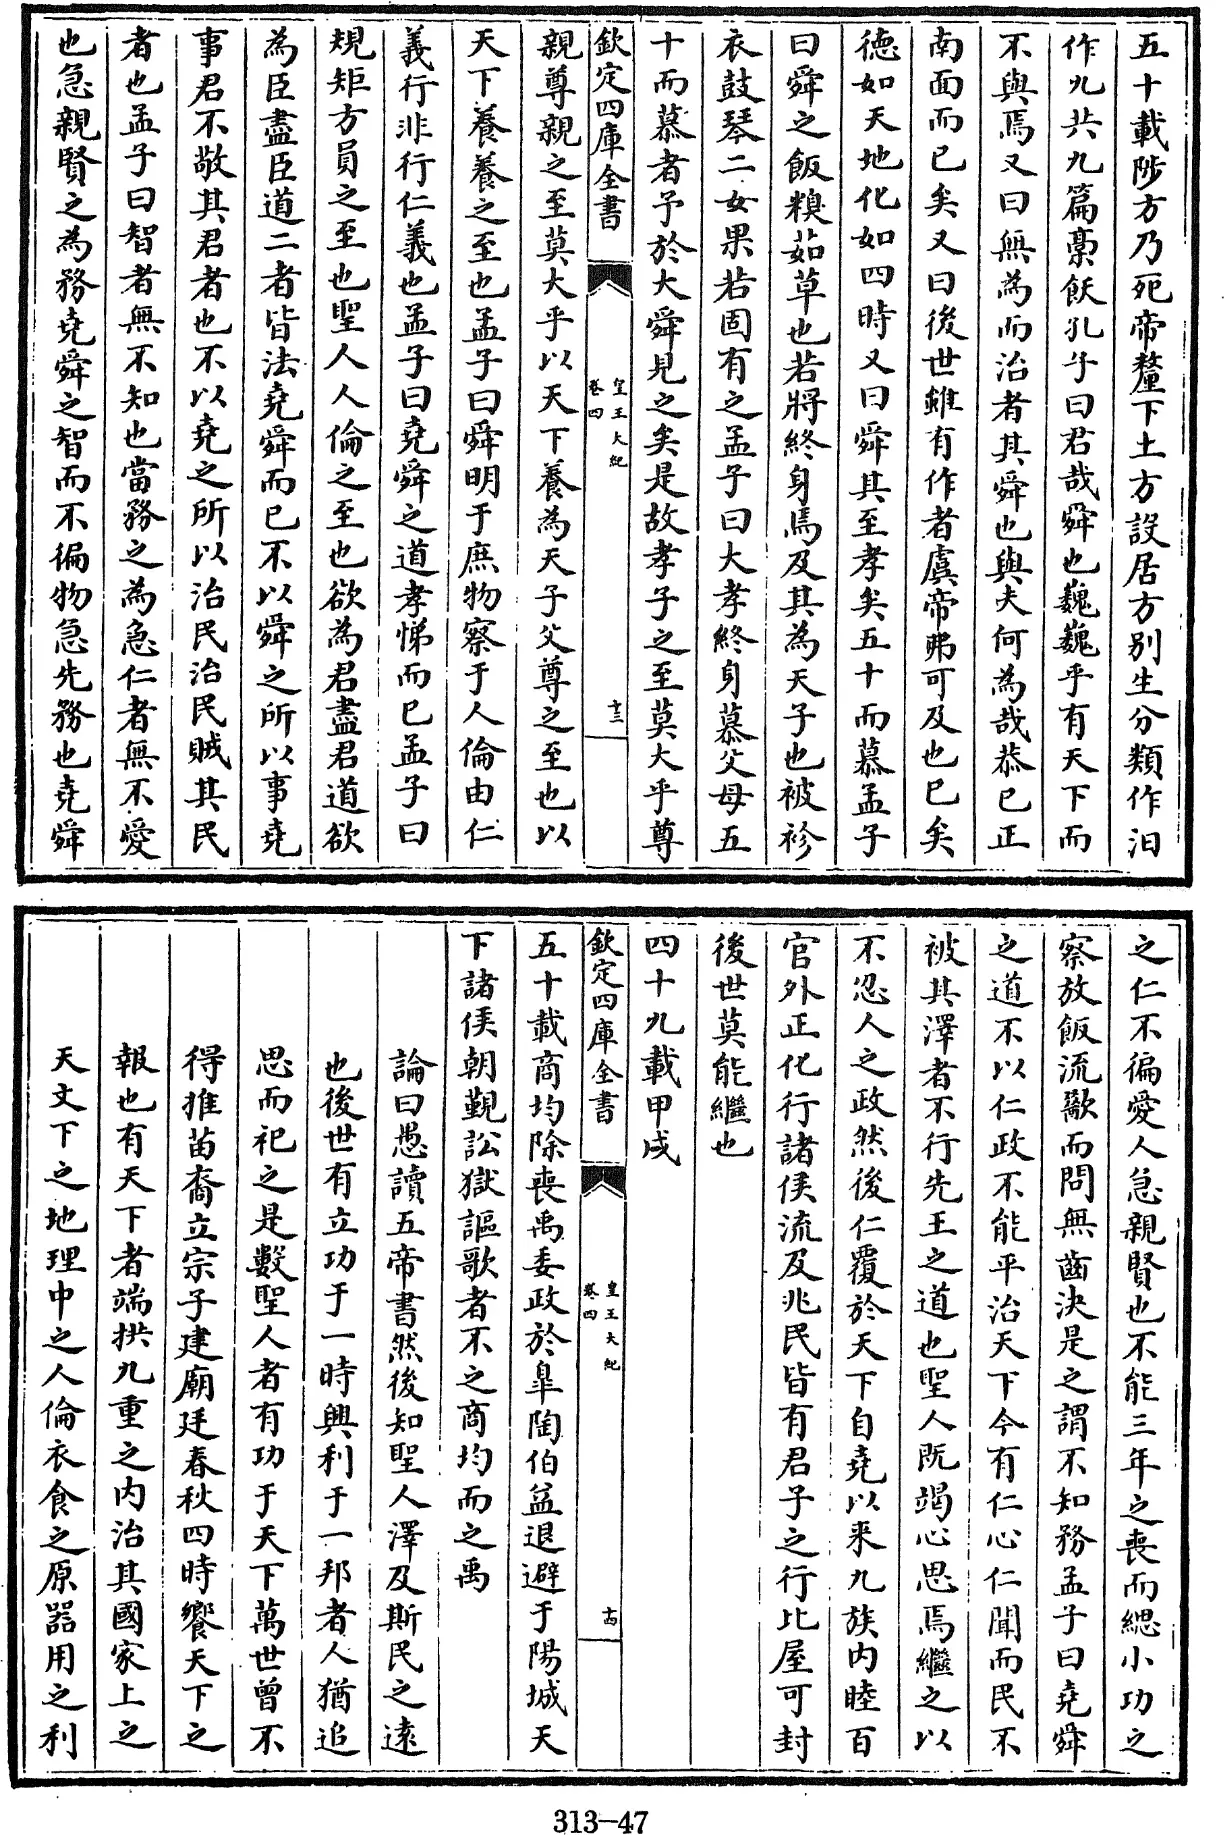 五十載陟方乃死帝釐下土方設居方别生分類作汩
作九共九篇稾飫孔子曰君哉舜也巍巍乎有天下而
不與焉又曰無為而治者其舜也與夫何為哉恭己正
南面而已矣又曰後世雖有作者虞帝弗可及也已矣
德如天地化如四時又曰舜其至孝矣五十而慕孟子
曰舜之飯糗茹草也若將終身焉及其為天子也被袗
衣鼓琴二女果若固有之孟子曰大孝終身慕父母五
十而慕者予於大舜見之矣是故孝子之至莫大乎尊
欽定四庫全書
皇王大紀
卷四
十三
親尊親之至莫大乎以天下養為天子父尊之至也以
天下養養之至也孟子曰舜明于庶物察于人倫由仁
義行非行仁義也孟子曰堯舜之道孝悌而已孟子曰
規矩方員之至也聖人人倫之至也欲為君盡君道欲
為臣盡臣道二者皆法堯舜而已不以舜之所以事堯
事君不敬其君者也不以堯之所以治民治民賊其民
者也孟子曰智者無不知也當務之為急仁者無不愛
也急親賢之為務堯舜之智而不徧物急先務也堯舜
之仁不徧愛人急親賢也不能三年之喪而緦小功之
察放飯流歠而問無齒決是之謂不知務孟子曰堯舜
之道不以仁政不能平治天下今有仁心仁聞而民不
被其澤者不行先王之道也聖人既竭心思焉繼之以
不忍人之政然後仁覆於天下自堯以來九族内睦百
官外正化行諸侯流及兆民皆有君子之行比屋可封
後世莫能繼也
四十九載甲戌
欽定四庫全書
皇王大紀
卷四
十四
五十載商均除喪禹委政於臯陶伯益退避于陽城天
下諸侯朝覲訟獄謳歌者不之商均而之禹
論曰愚讀五帝書然後知聖人澤及斯民之遠
也後世有立功于一時興利于一邦者人猶追
思而祀之是數聖人者有功于天下萬世曾不
得推苗裔立宗子建廟廷春秋四時饗天下之
報也有天下者端拱九重之内治其國家上之
天文下之地理中之人倫衣食之原器用之利
313-47